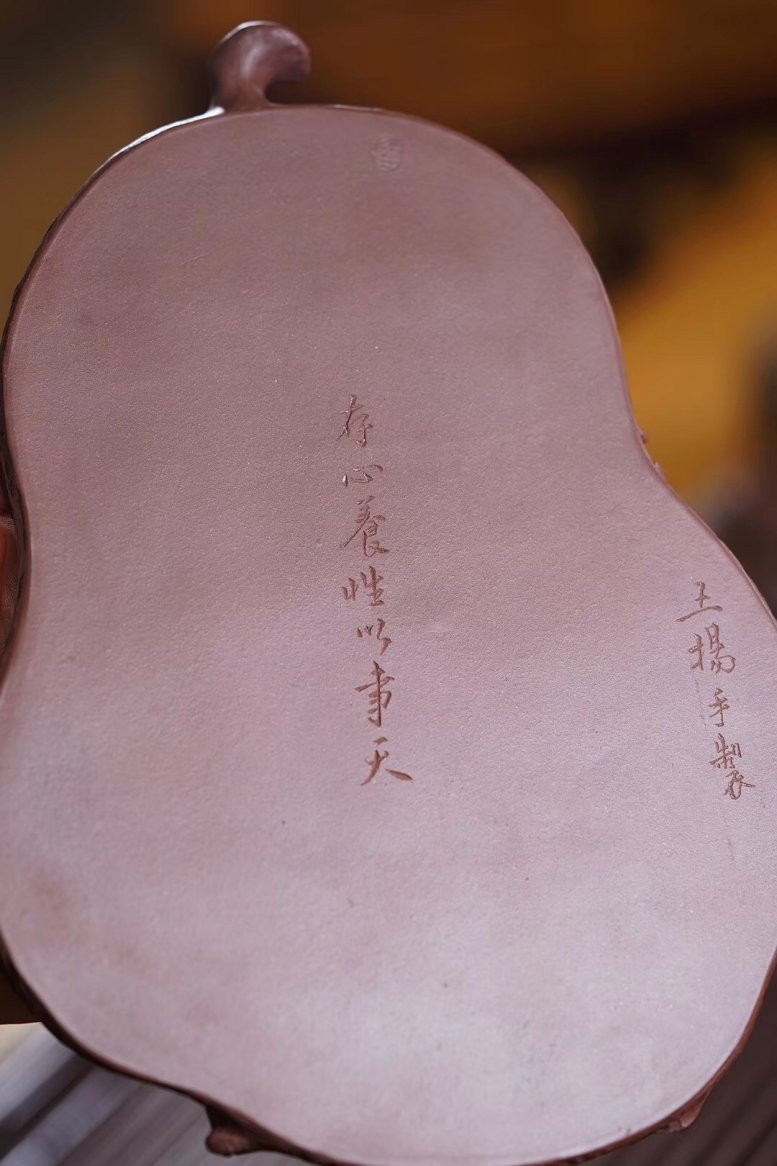 存心養性以事天
王揚手製